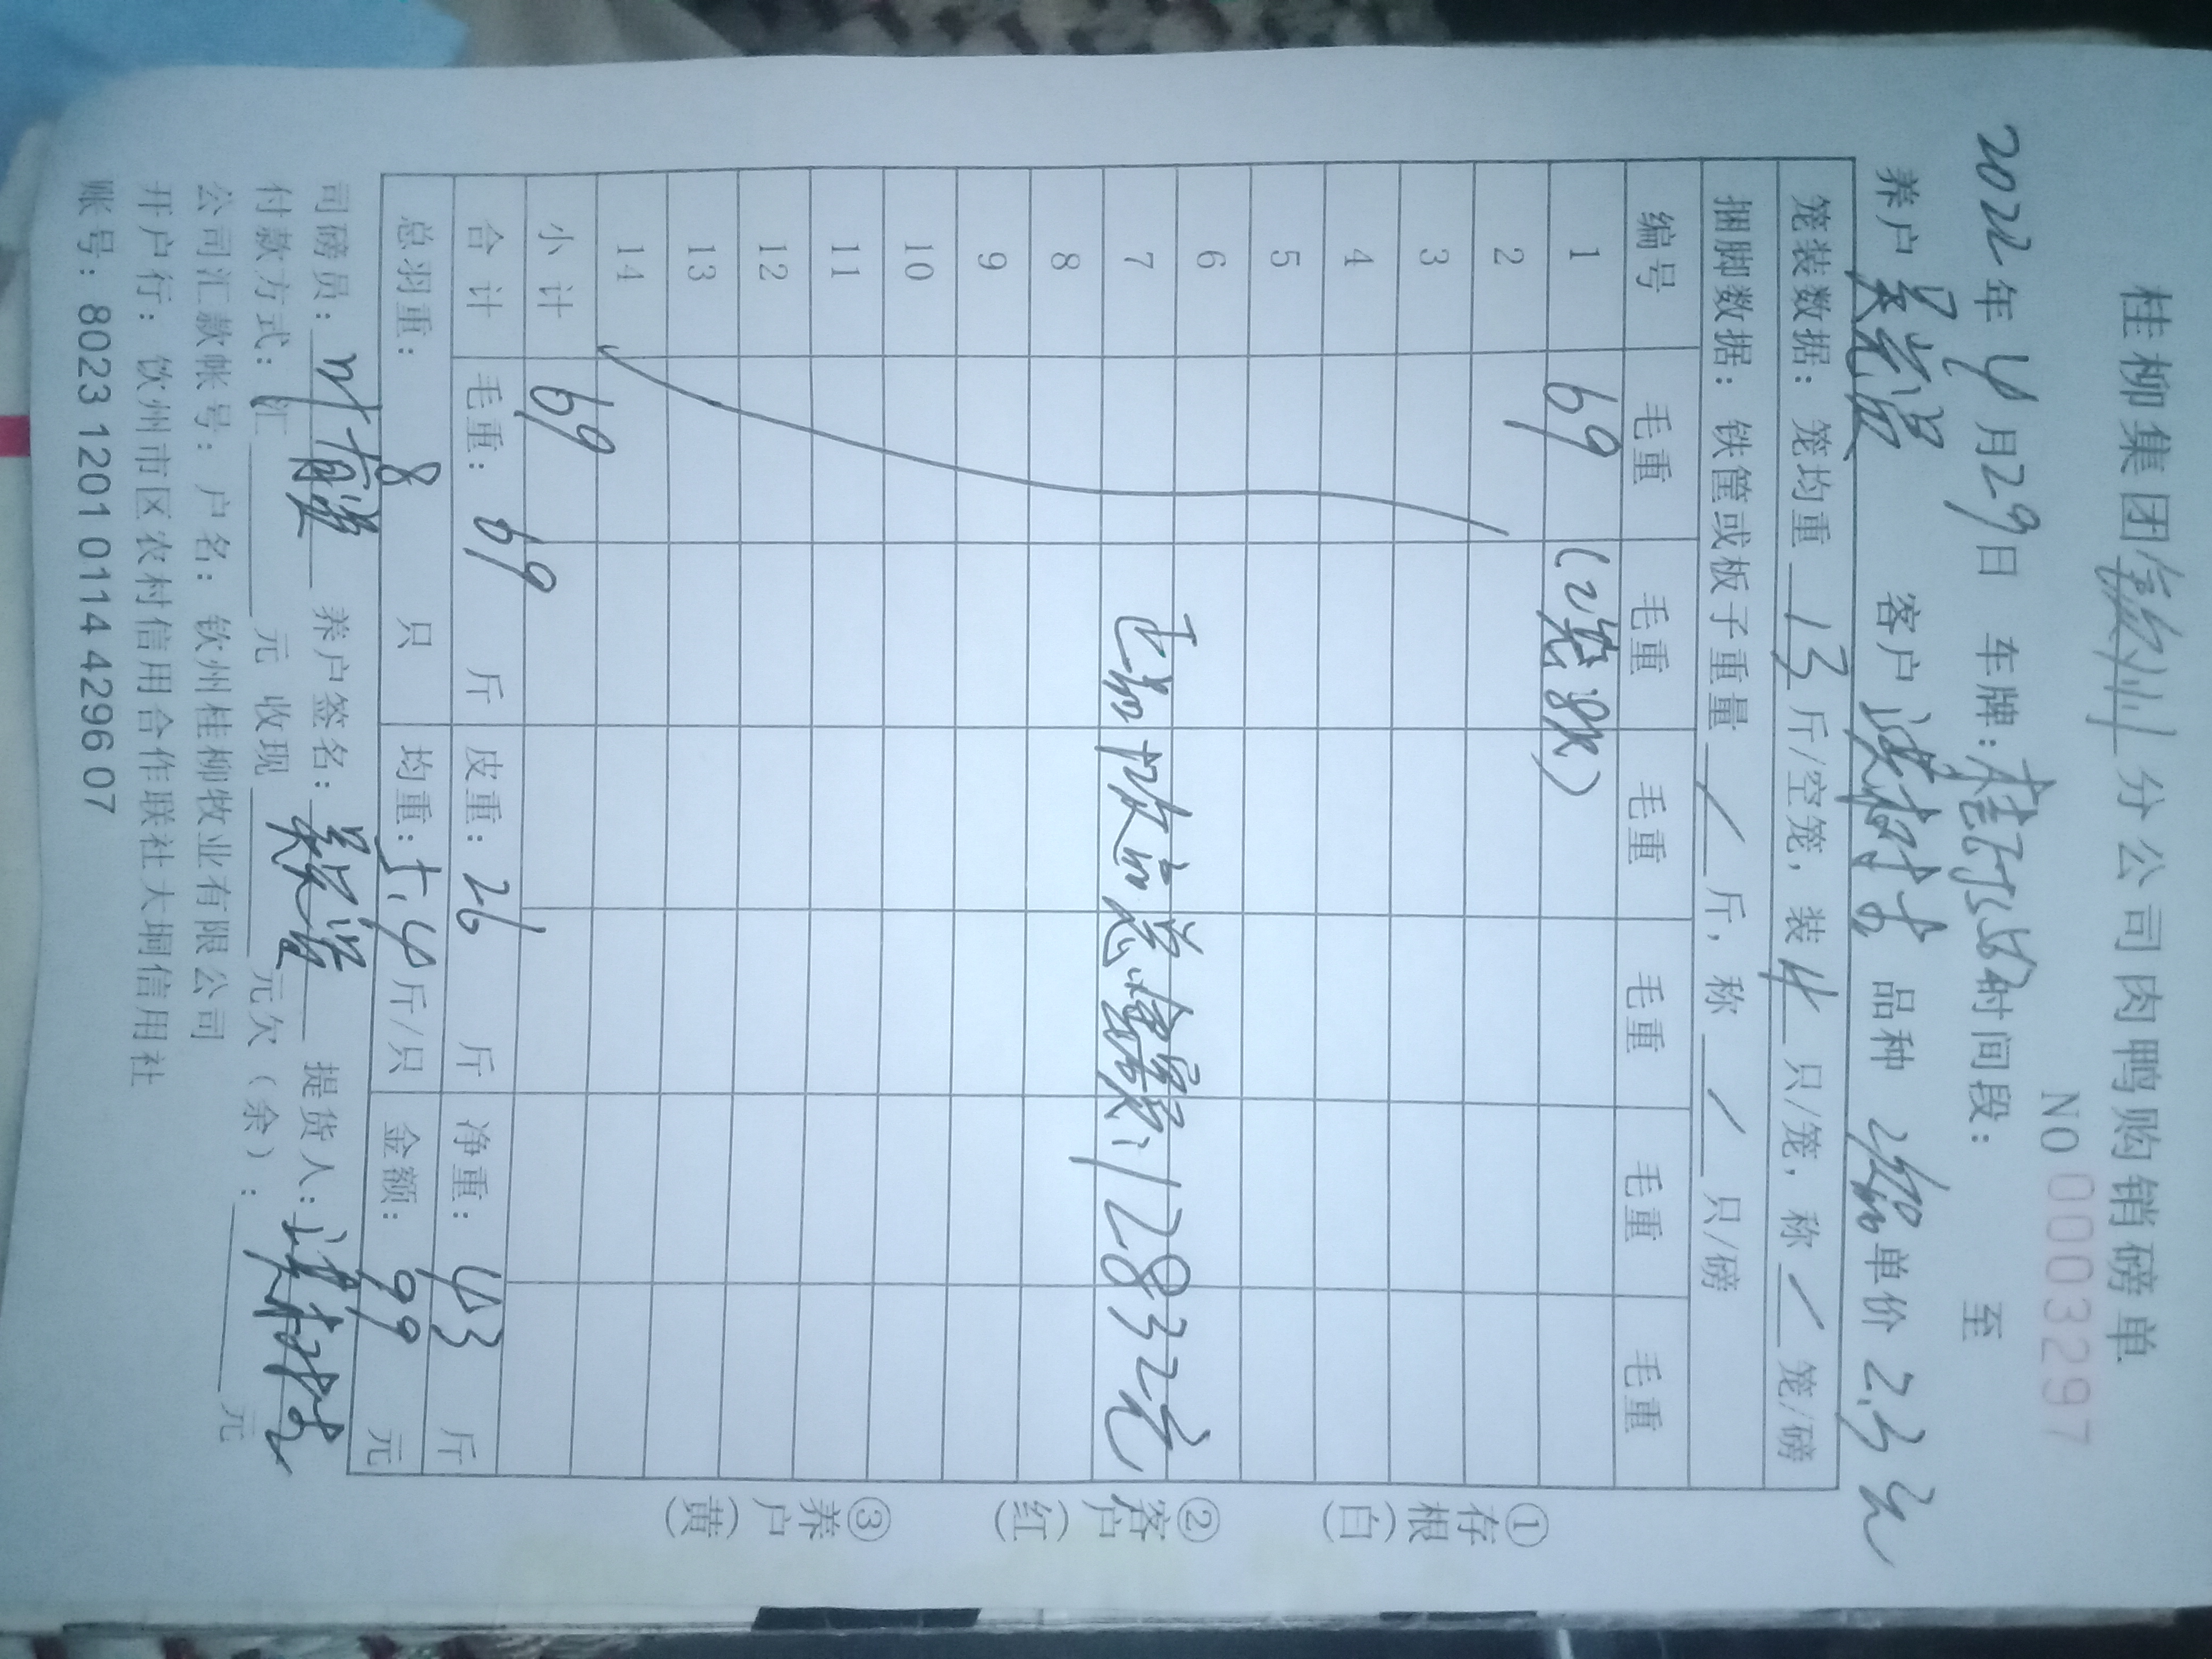 桂柳集团钦州分公司肉鸭购销磅单
NO 0003297
2022年4月29日 车牌: 时间段: 至
养户 客户 品种 单价 2.3元
笼装数据: 笼均重 13 斤/空笼, 装 4 只/笼, 称 / 笼/磅
捆脚数据: 铁筐或板子重量 / 斤, 称 / 只/磅
编号 毛重 毛重 毛重 毛重 毛重 毛重
1 69 (2笼8只)
2
3
4
5
6
7 总金额: 12832元
8
9
10
11
12
13
14
小计 69
合计 毛重: 69 斤 皮重: 26 斤 净重: 43 斤
总羽重: 8 只 均重: 5.4 斤/只 金额: 99 元
司磅员: 养户签名: 提货人:
付款方式: 汇 元 收现 元欠(余): 元
公司汇款帐号: 户名: 钦州桂柳牧业有限公司
开户行: 饮州市区农村信用合作联社大垌信用社
账号: 8023 1201 0114 4296 07
①存根(白)
②客户(红)
③养户(黄)